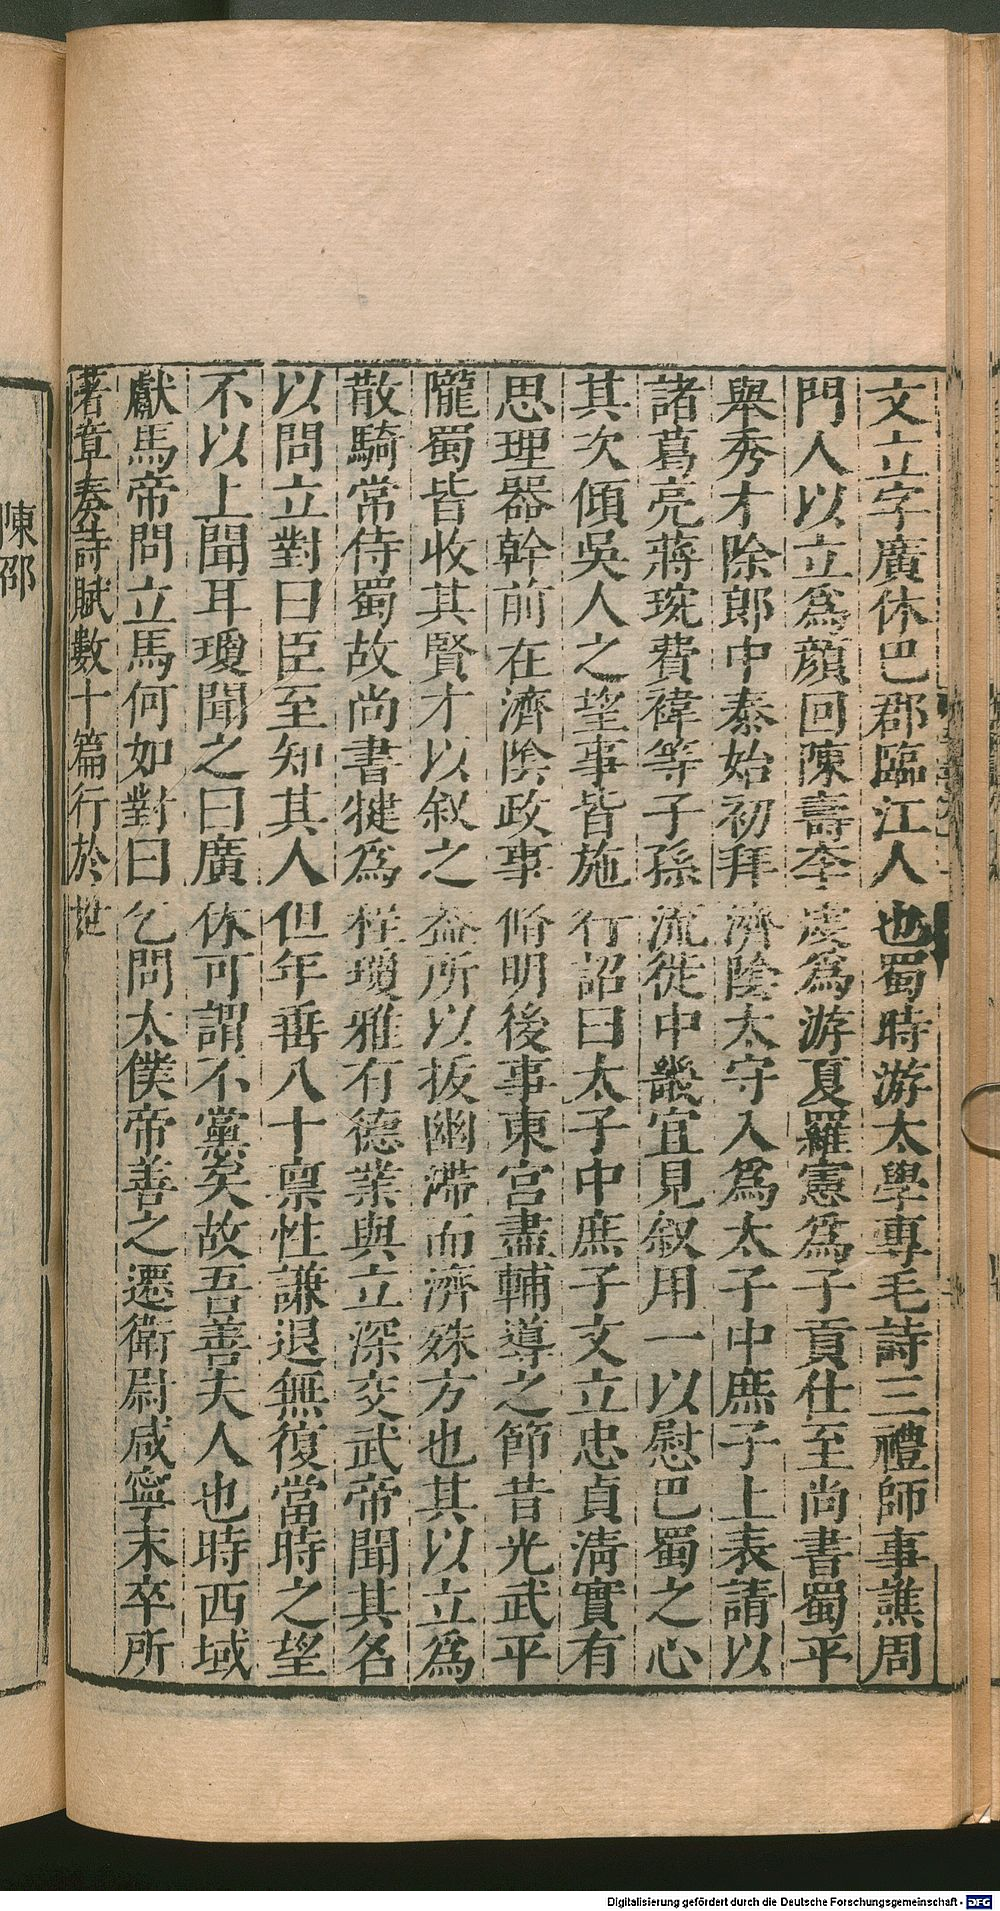 文立字廣休巴郡臨江人也蜀時游太學專毛詩三禮師事譙周
門人以立爲顏回陳壽李虔爲游夏羅憲爲子貢仕至尚書蜀平
舉秀才除郎中泰始初拜濟陰太守入爲太子中庶子上表請以
諸葛亮蔣琬費禕等子孫流徙中畿宜見叙用一以慰巴蜀之心
其次傾吳人之望事皆施行詔曰太子中庶子文立忠貞清實有
思理器幹前在濟陰政事脩明後事東宮盡輔導之節昔光武平
隴蜀皆收其賢才以叙之益所以拔幽滯而濟殊方也其以立爲
散騎常侍蜀故尚書犍爲程瓊雅有德業與立深交武帝聞其名
以問立對曰臣至知其人但年垂八十禀性謙退無復當時之望
不以上聞耳瓊聞之曰廣休可謂不黨矣故吾善夫人也時西域
獻馬帝問立馬何如對曰乞問太僕帝善之遷衛尉咸寧末卒所
著章奏詩賦數十篇行於世
陳邵
Digitalisierung gefördert durch die Deutsche Forschungsgemeinschaft - DFG